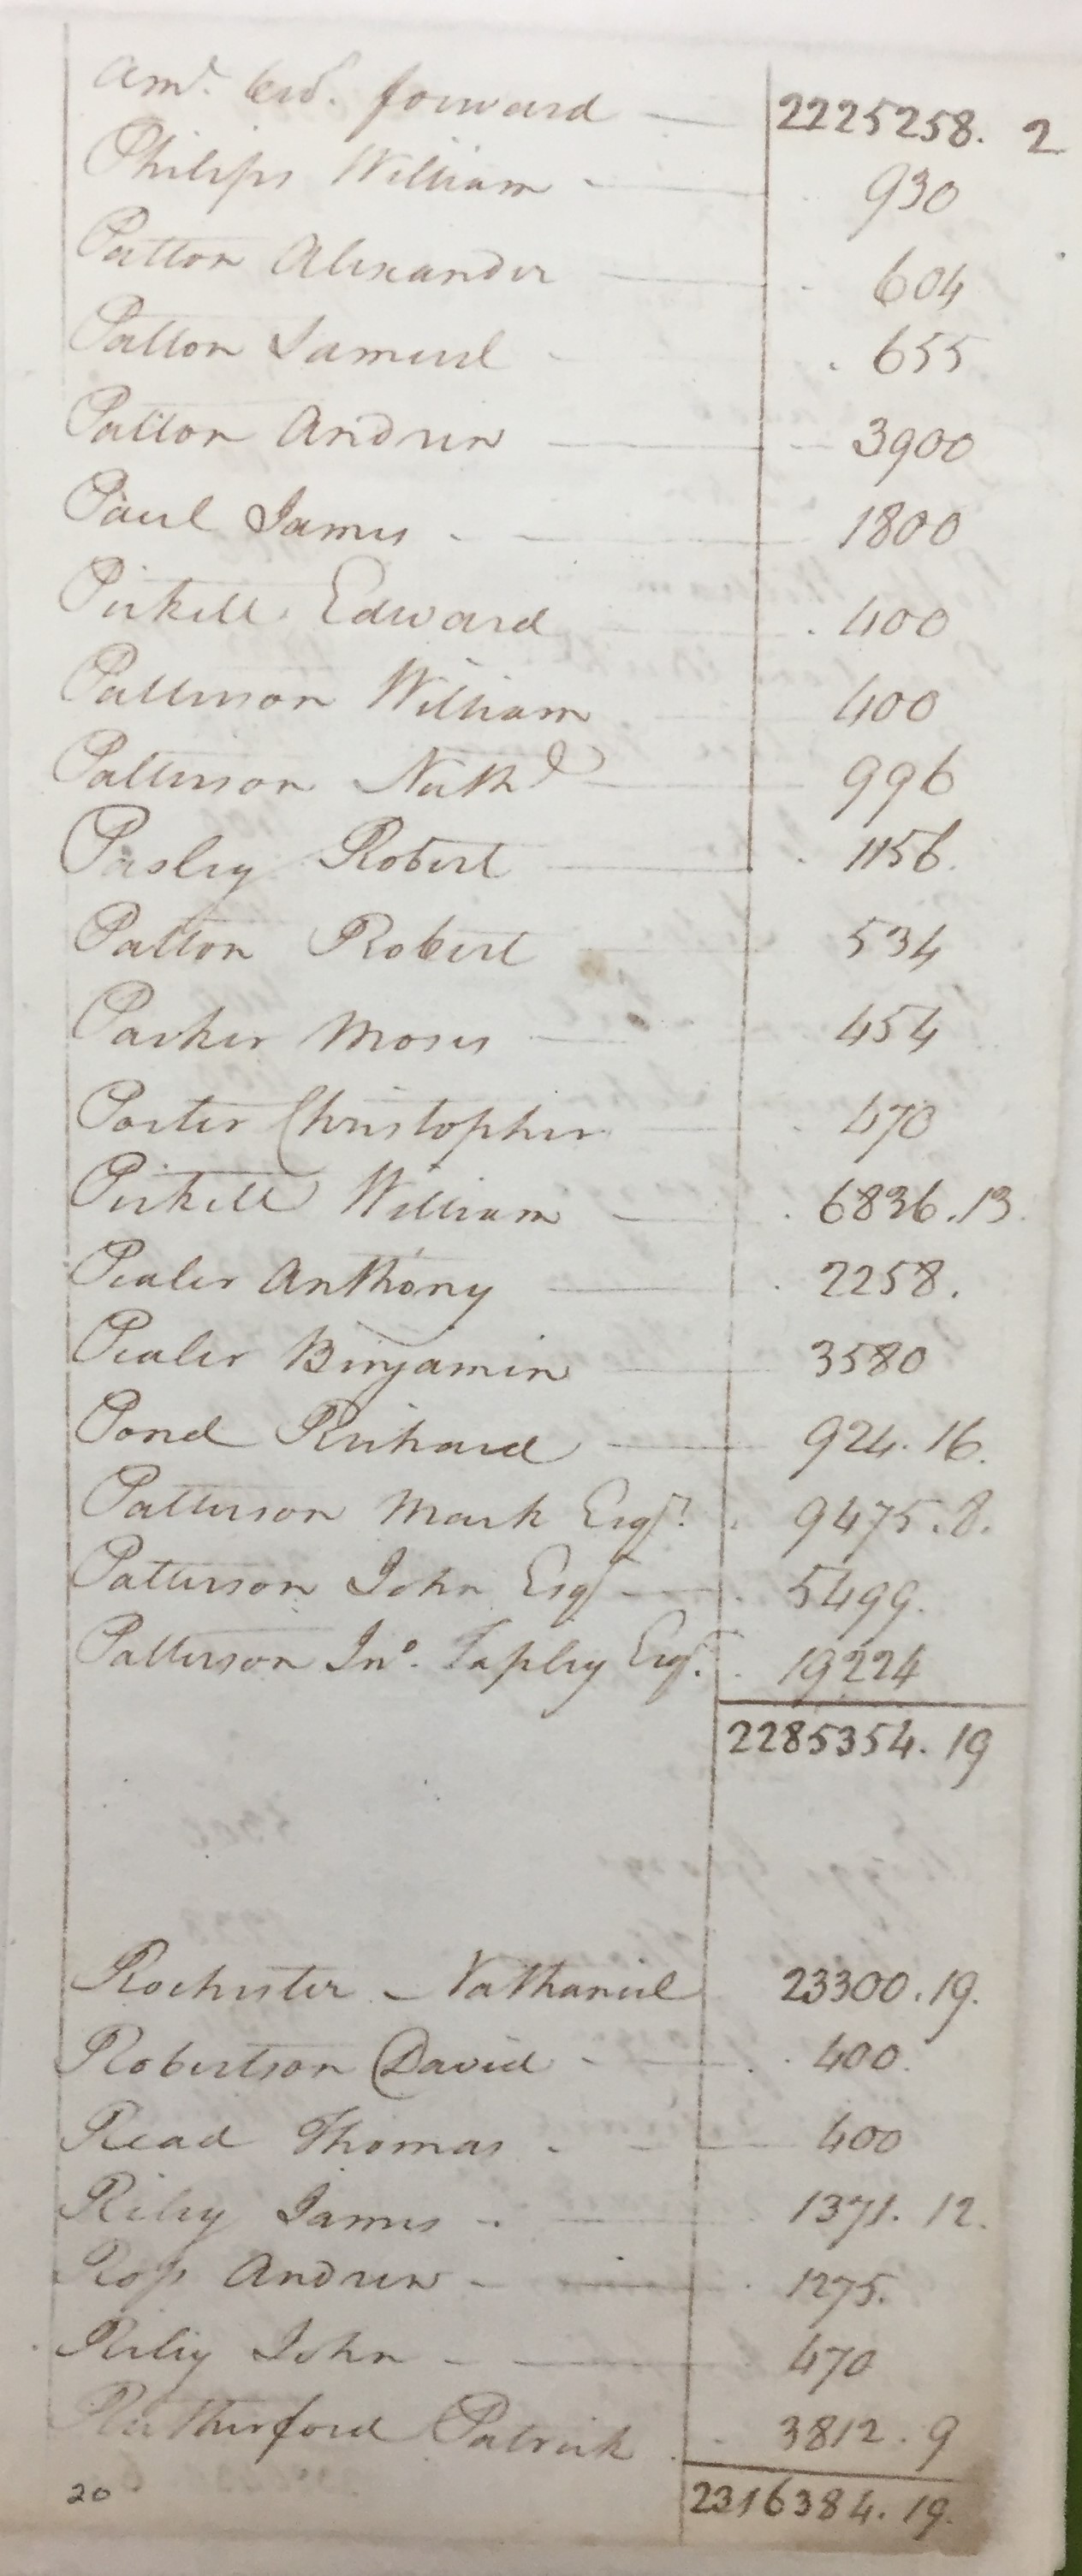 Amt. brd. forward — 2225258. 2
Philips William - — 930
Patton Alexander — 604
Patton Samuel - 655
Patton Andrew — 3900
Paul James - — 1800
Pickett Edward — 400
Patterson William 400
Patterson Nathl — 996
Pasley Robert — 1156.
Patton Robert 534
Parker Moses — 454
Porter Christopher — 470
Pickett William — 6836.13.
Pealer Anthony — 2258.
Pealer Benjamin — 3580
Pond Richard — 924.16.
Patterson Mark Esqr. 9475.8.
Patterson John Esqr — 5499.
Patterson Jno. Tapley Esqr. 19224
2285354.19
Rochester Nathaniel 23300.19.
Robertson David - — 400.
Read Thomas - — 400
Riley James - — 1371.12.
Ross Andrew - — 1275.
Riley John - — 470
Rutherford Patrick 3812.9
20 2316384.19.